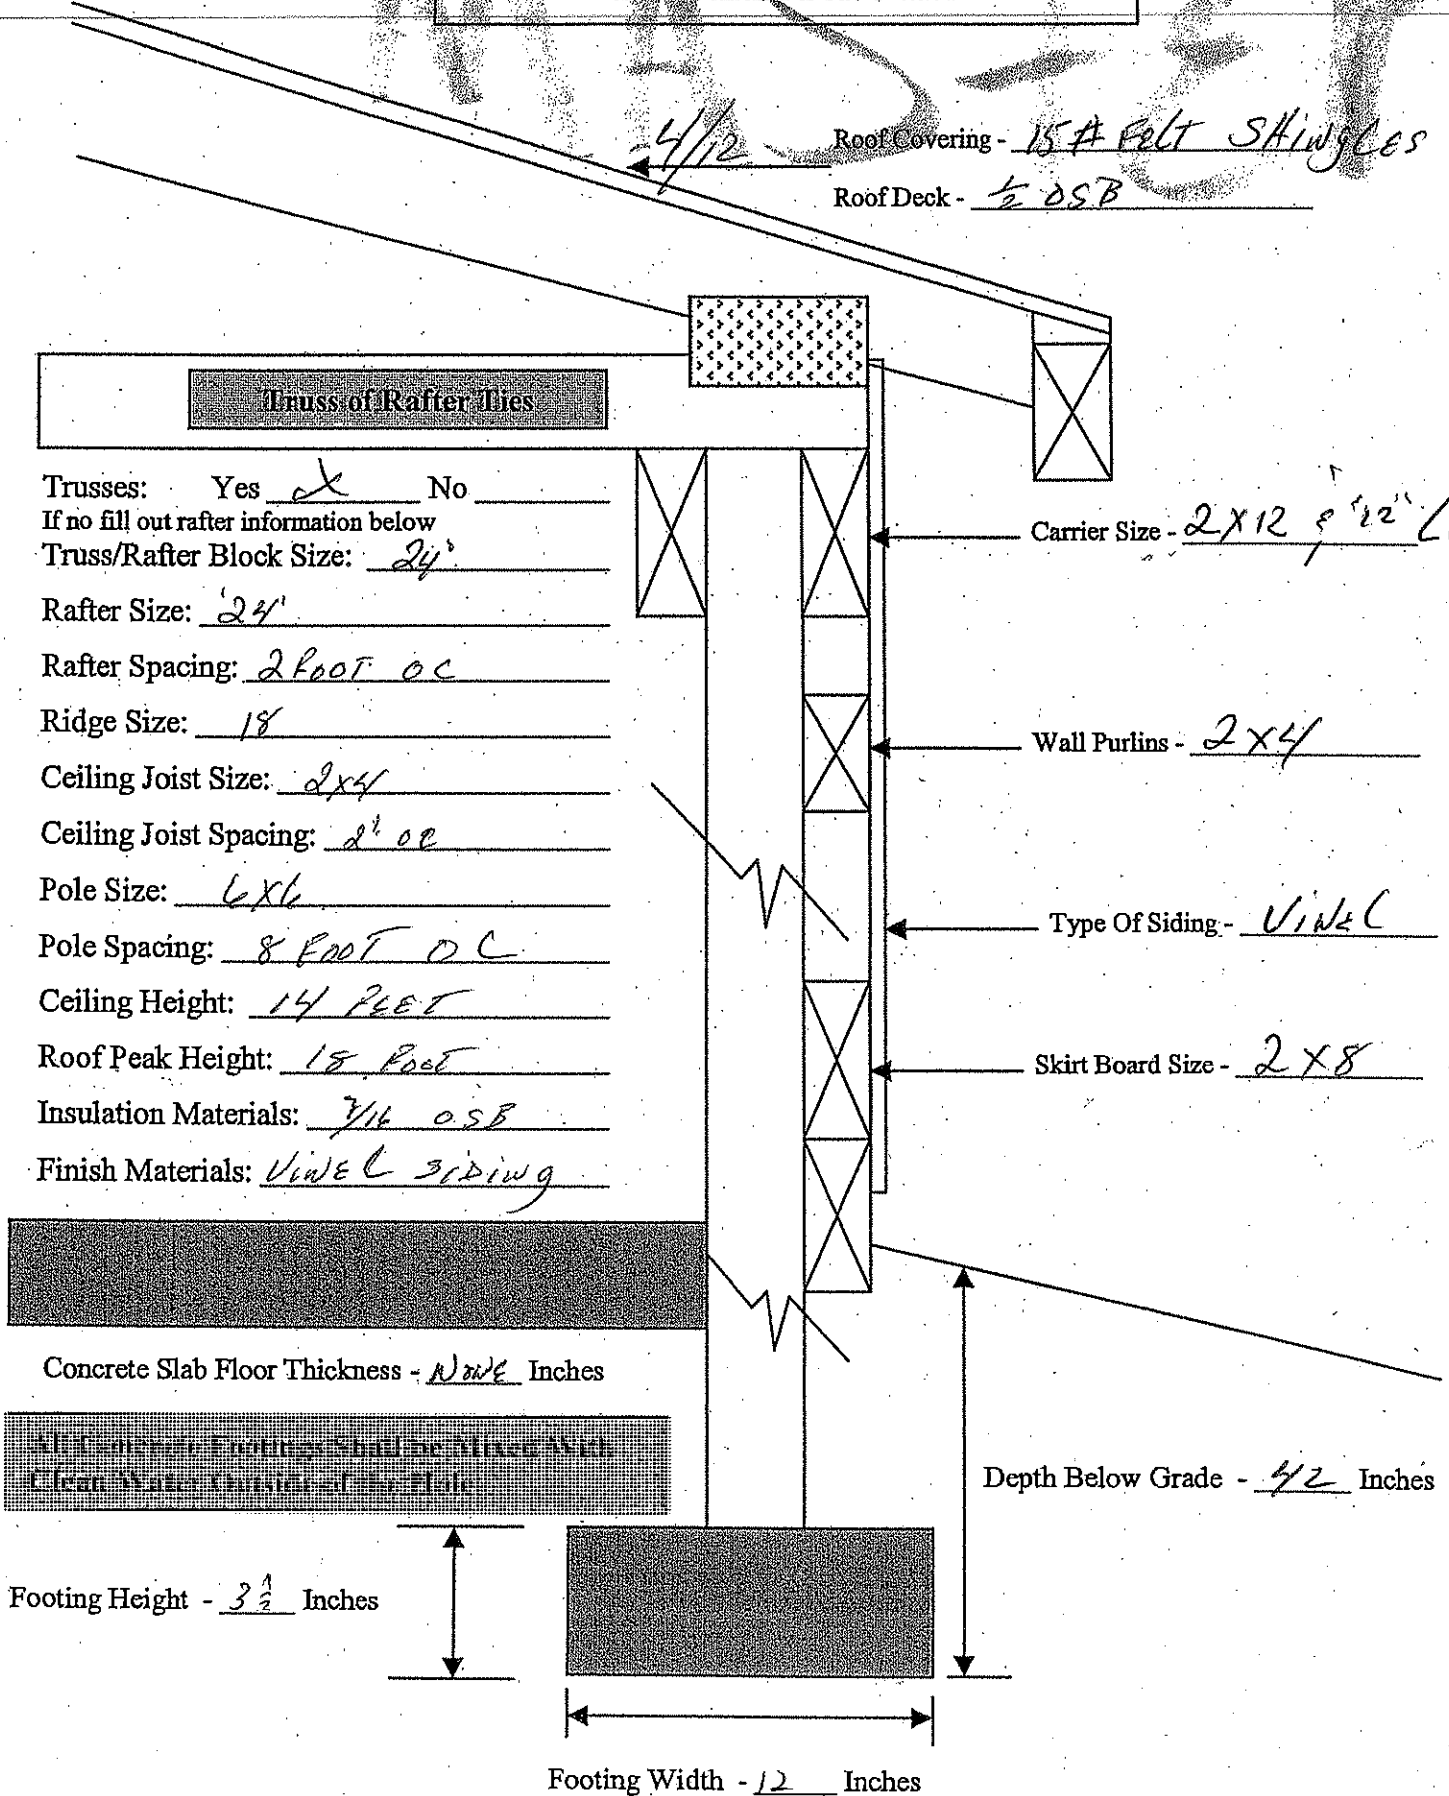 4/12
Roof Covering - 15 # FELT SHiNgLES
Roof Deck - 1/2 OSB
Truss of Rafter Ties
Trusses: Yes X No
If no fill out rafter information below
Truss/Rafter Block Size: 24'
Rafter Size: 24'
Rafter Spacing: 2 FOOT OC
Ridge Size: 18
Ceiling Joist Size: 2x4
Ceiling Joist Spacing: 2' OC
Pole Size: 6X6
Pole Spacing: 8 FOOT OC
Ceiling Height: 14 FEET
Roof Peak Height: 18 FooT
Insulation Materials: 7/16 OSB
Finish Materials: ViNEL SiDiNg
Carrier Size - 2X12
Wall Purlins - 2X4
Type Of Siding - ViNEL
Skirt Board Size - 2X8
Concrete Slab Floor Thickness - NONE Inches
All Concrete Footings Shall be Mixed With
Clean Water Outside of the Hole
Depth Below Grade - 42 Inches
Footing Height - 3 1/2 Inches
Footing Width - 12 Inches